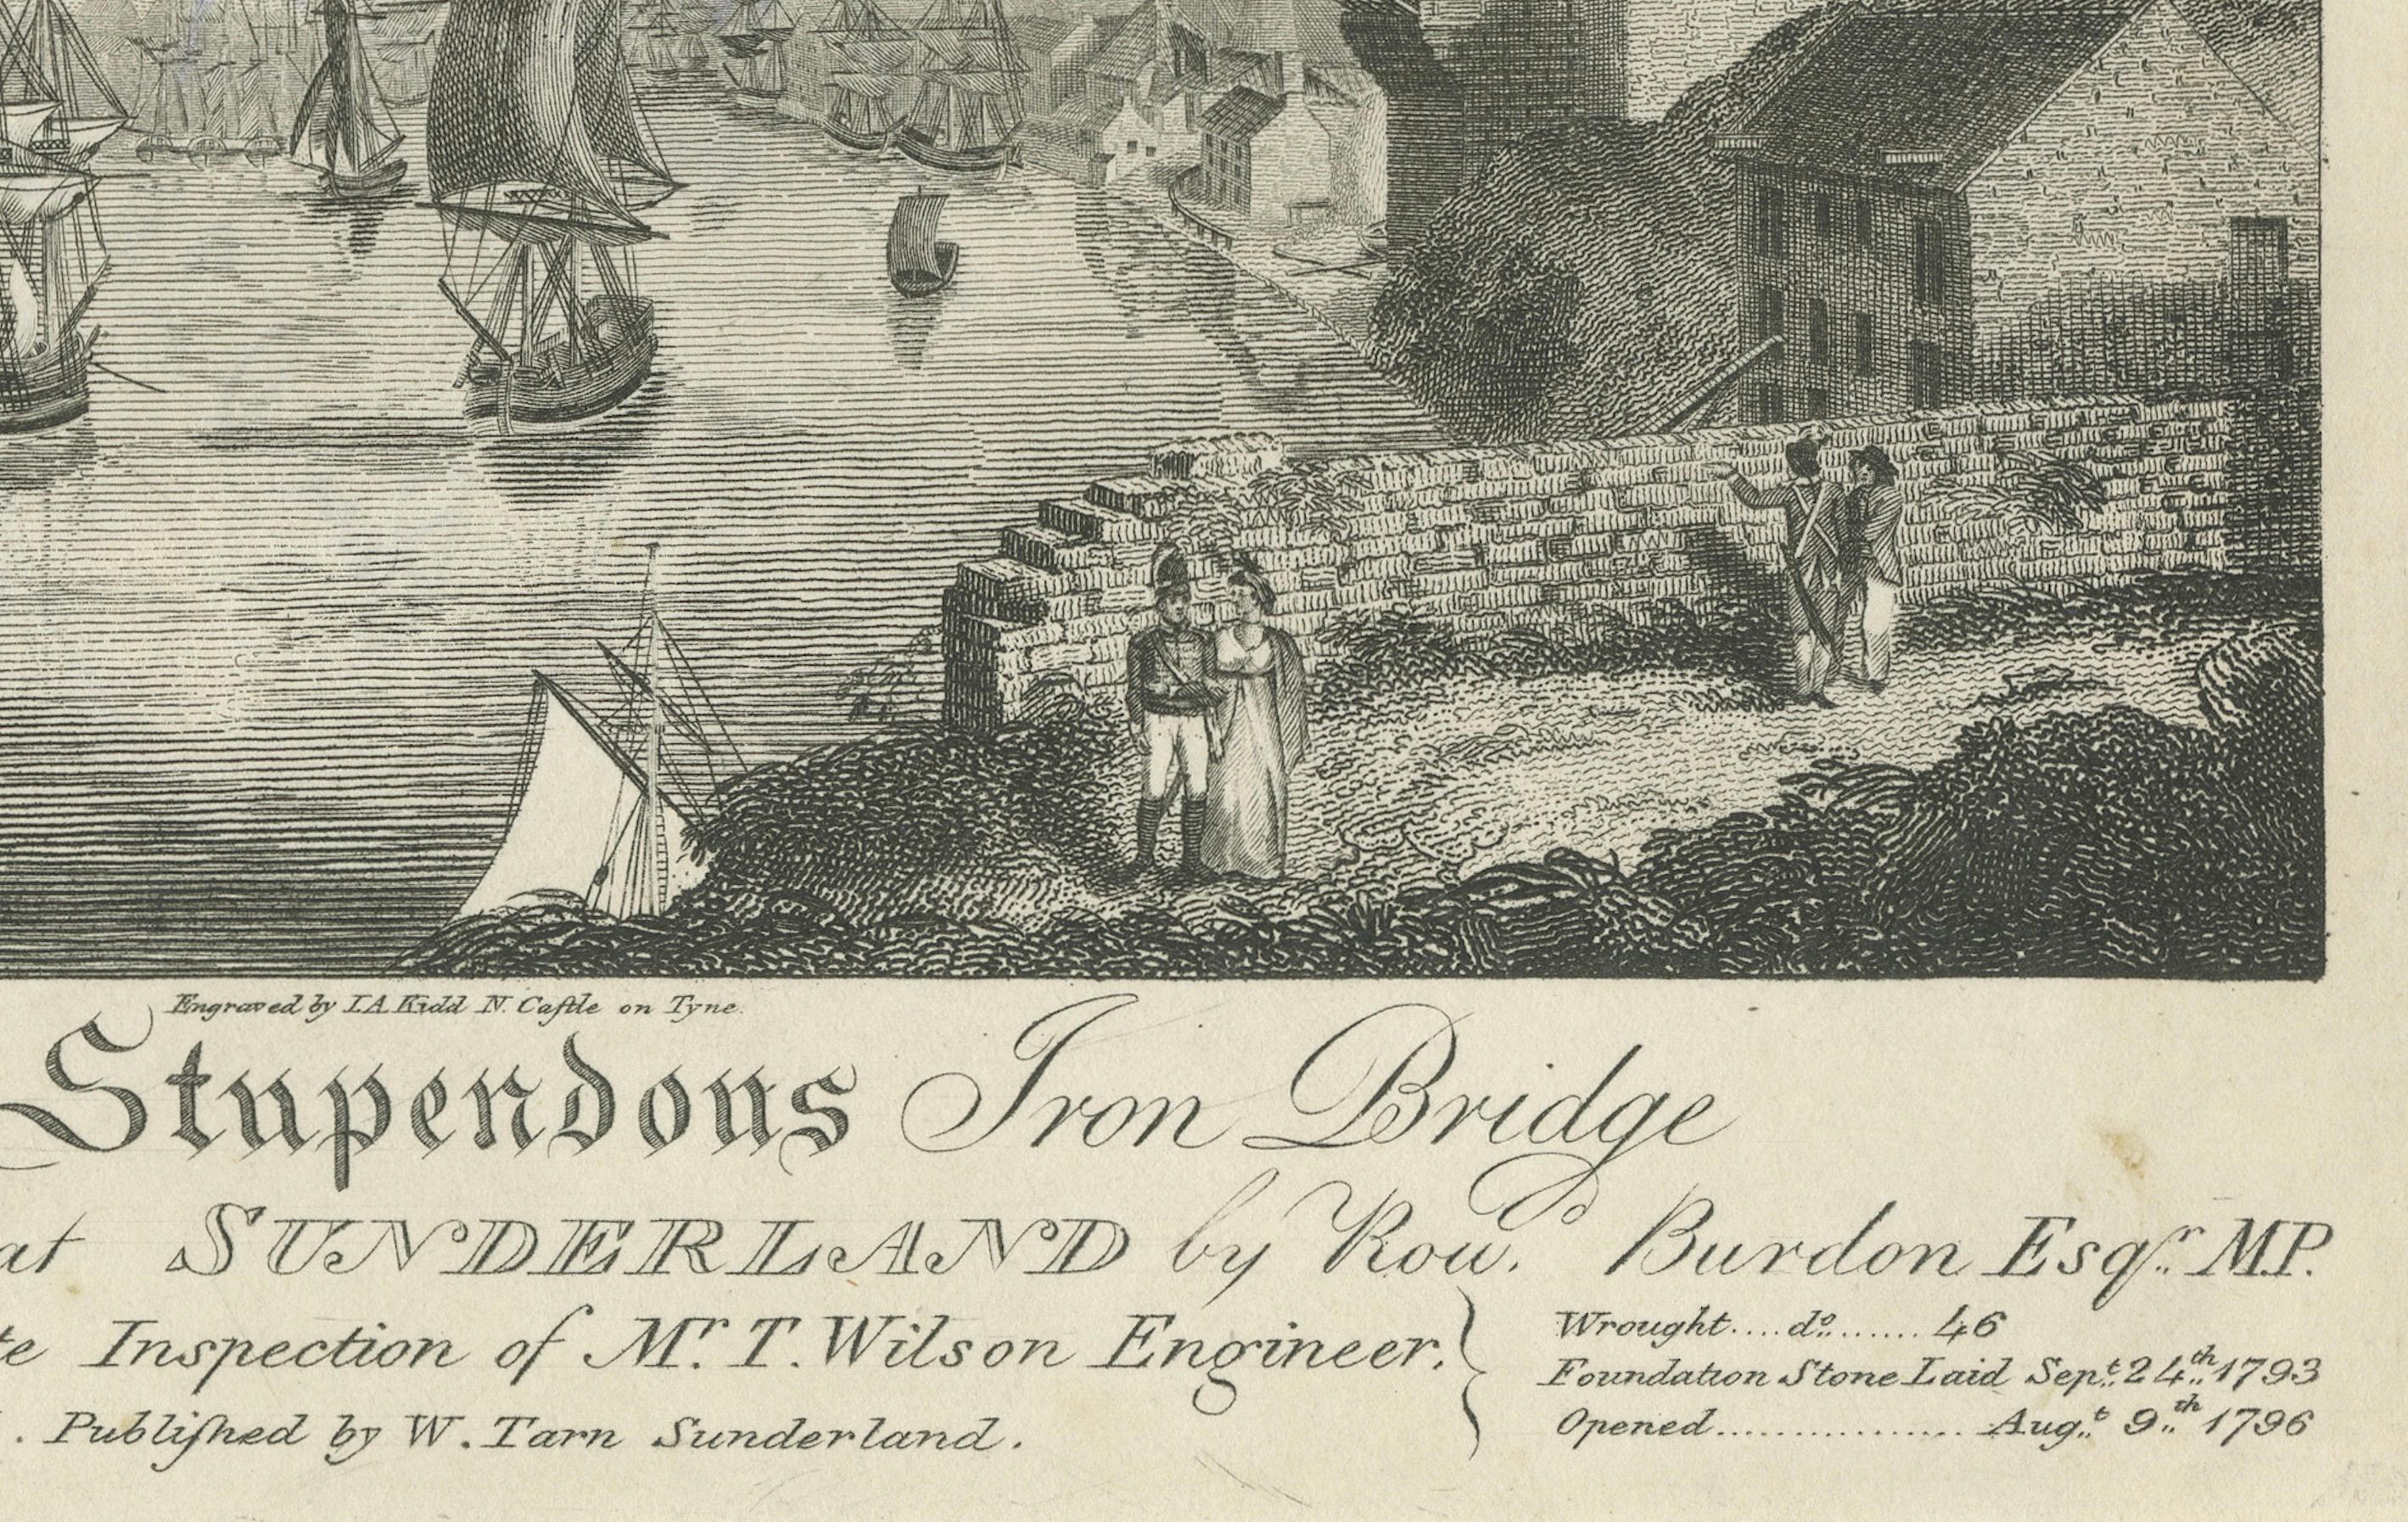 Engraved by I.A. Kidd N. Caſtle on Tyne.
Stupendous Iron Bridge
at SUNDERLAND by Row.d Burdon Esqr. M.P.
te Inspection of Mr. T. Wilson Engineer.
Wrought....do........46
Foundation Stone Laid Sept. 24th 1793
. Publiſhed by W. Tarn Sunderland.
Opened................. Augt. 9th 1796